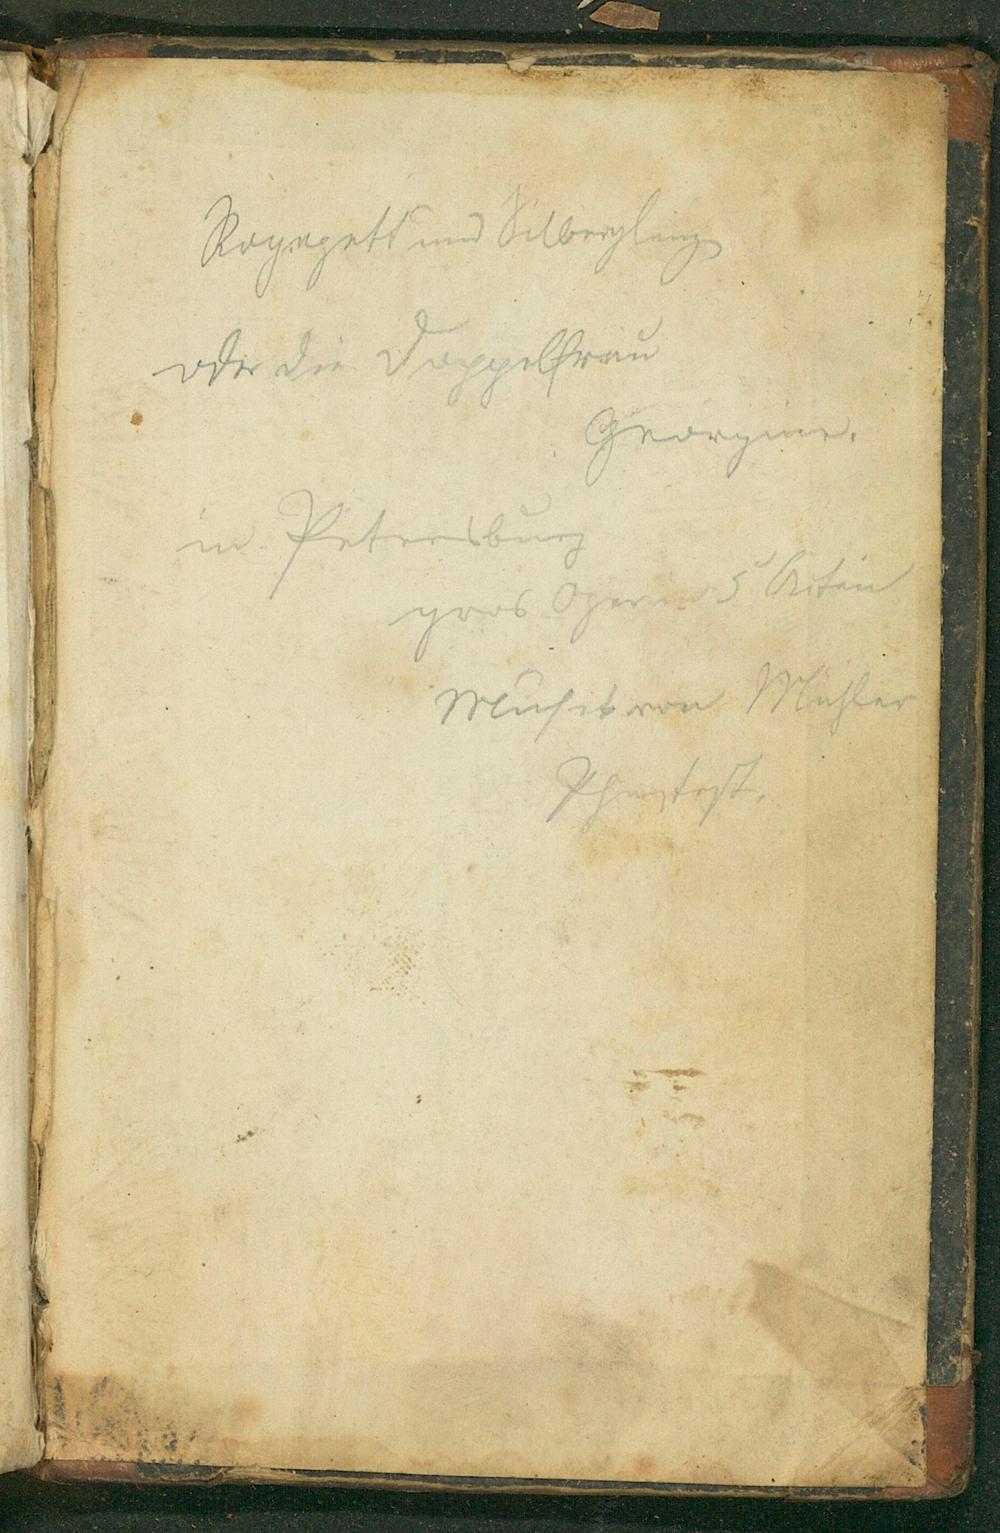 und Silberglanz
oder die Doppelfrau
Georgine.
in Petersburg
gros Oper in 5 Akten
Musik von Müller